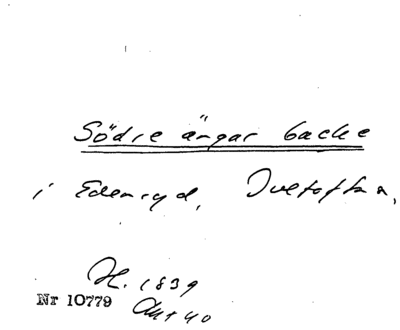 Södre ängar backe
i Edenryd, Ivetofta,
H. 1839
Nr 10779 Akt 40